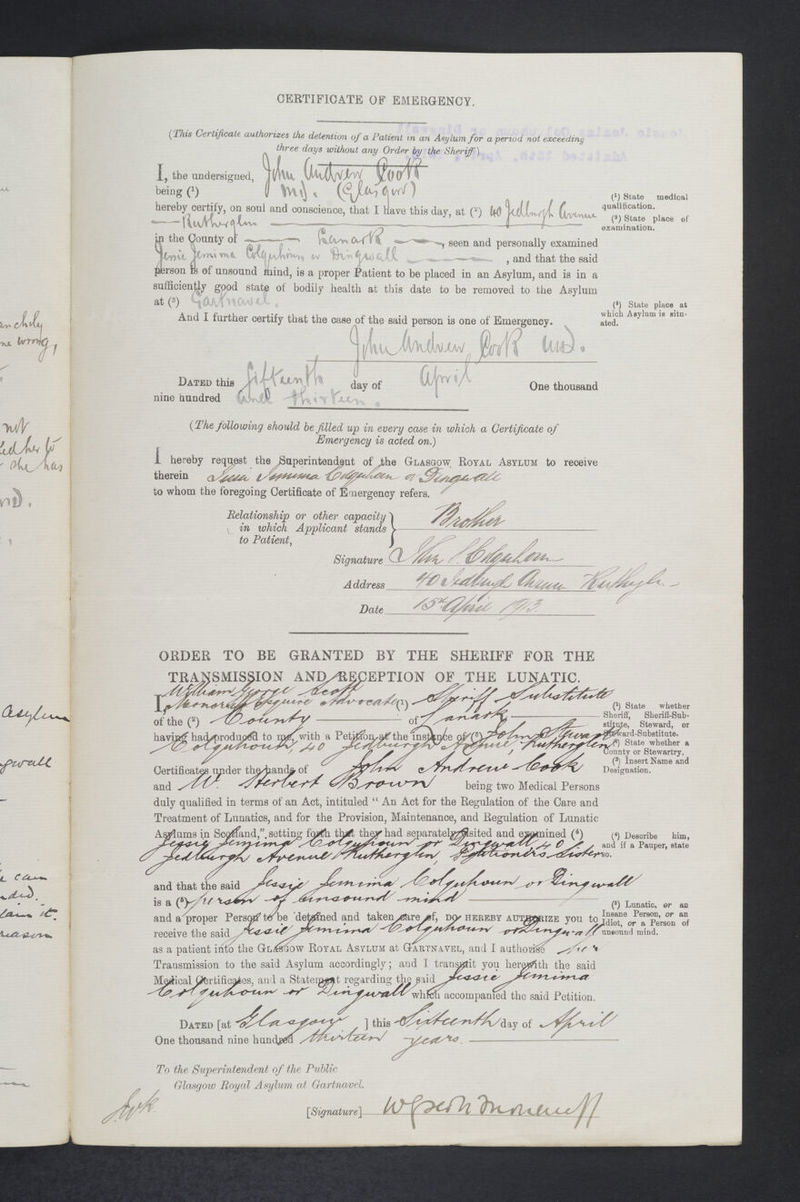 CERTIFICATE OF EMERGENCY.
(This Certificate authorizes the detention of a Patient in an Asylum for a period not exceeding
three days without any Order by the Sheriff)
I, the undersigned, John Andrew Cook
being (¹) M.D. (Glasgow)
hereby certify, on soul and conscience, that I have this day, at (²) 40 Jedburgh Avenue
Rutherglen
in the County of Lanark, seen and personally examined
Jessie Jemima Colquhoun or Dingwall, and that the said
person is of unsound mind, is a proper Patient to be placed in an Asylum, and is in a
sufficiently good state of bodily health at this date to be removed to the Asylum
at (³) Gartnavel.
And I further certify that the case of the said person is one of Emergency.
John Andrew Cook M.D.
DATED this fifteenth day of April One thousand
nine hundred and thirteen.
(¹) State medical
qualification.
(²) State place of
examination.
(³) State place at
which Asylum is situ-
ated.
(The following should be filled up in every case in which a Certificate of
Emergency is acted on.)
I hereby request the Superintendent of the GLASGOW ROYAL ASYLUM to receive
therein Jessie Jemima Colquhoun or Dingwall
to whom the foregoing Certificate of Emergency refers.
Relationship or other capacity
in which Applicant stands
to Patient,
Brother
Signature John S Colquhoun
Address 40 Jedburgh Avenue Rutherglen
Date 15th April 1913.
ORDER TO BE GRANTED BY THE SHERIFF FOR THE
TRANSMISSION AND RECEPTION OF THE LUNATIC.
William George Scott
I, Moncrieff Esquire Advocate (¹) Sheriff Substitute
of the (²) County of Lanark
having had produced to me, with a Petition at the instance of (³) John Stewart
Colquhoun, 40 Jedburgh Avenue, Rutherglen
Certificates under the hands of John Andrew Cook
and W. Herbert Brown being two Medical Persons
duly qualified in terms of an Act, intituled "An Act for the Regulation of the Care and
Treatment of Lunatics, and for the Provision, Maintenance, and Regulation of Lunatic
Asylums in Scotland," setting forth that they had separately visited and examined (⁴)
Jessie Jemima Colquhoun or Dingwall, 40
Jedburgh Avenue Rutherglen, Petitioner's Sister
and that the said Jessie Jemima Colquhoun or Dingwall
is a (⁵) person of unsound mind
and a proper Person to be detained and taken care of, DO HEREBY AUTHORIZE you to
receive the said Jessie Jemima Colquhoun or Dingwall
as a patient into the GLASGOW ROYAL ASYLUM at GARTNAVEL, and I authorise her
Transmission to the said Asylum accordingly; and I transmit you herewith the said
Medical Certificates, and a Statement regarding the said Jessie Jemima
Colquhoun or Dingwall which accompanied the said Petition.
DATED [at Glasgow ] this Sixteenth day of April
One thousand nine hundred thirteen years.
(¹) State whether
Sheriff, Sheriff-Sub-
stitute, Steward, or
Steward-Substitute.
(²) State whether a
County or Stewartry.
(³) Insert Name and
Designation.
(⁴) Describe him,
and if a Pauper, state
so.
(⁵) Lunatic, or an
Insane Person, or an
Idiot, or a Person of
unsound mind.
To the Superintendent of the Public
Glasgow Royal Asylum at Gartnavel.
[Signature] W G Scott Moncrieff